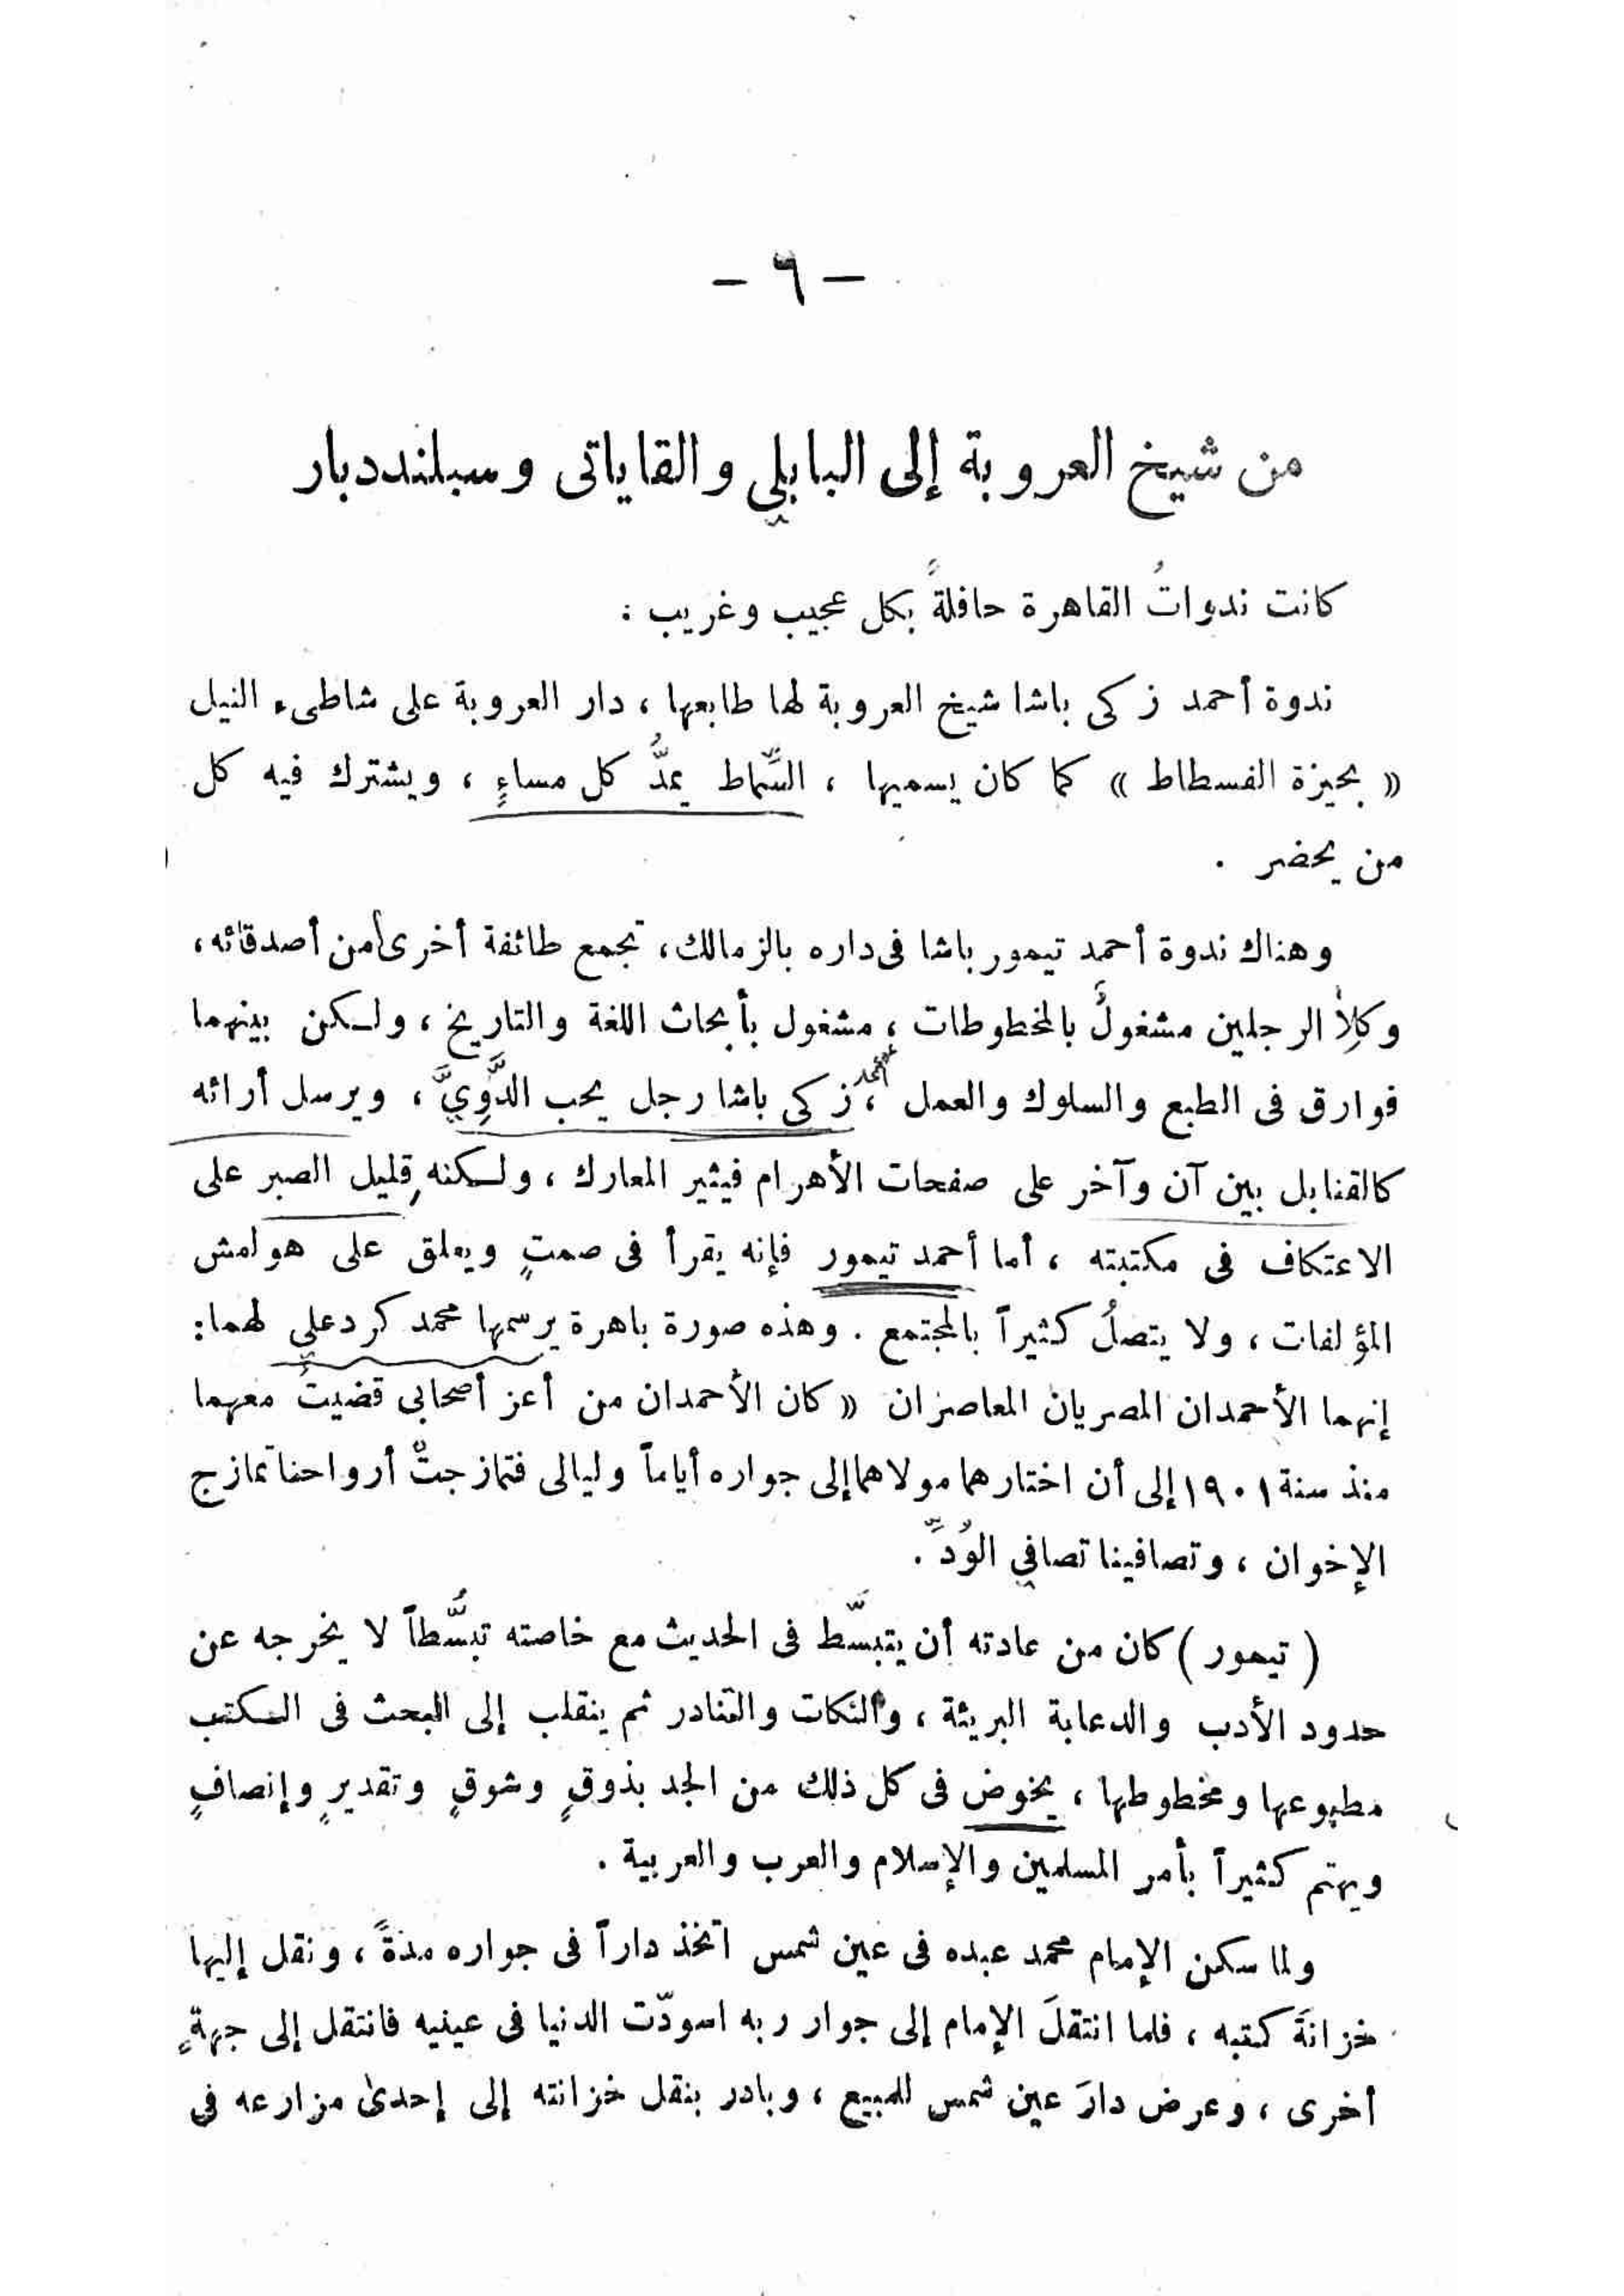 — ٦ —
من شيخ العروبة إلى البابلي والقاياتى وسبلنددبار
كانت ندواتُ القاهرة حافلةً بكل عجيب وغريب :
ندوة أحمد زكى باشا شيخ العروبة لها طابعها ، دار العروبة على شاطىء النيل
« بجيزة الفسطاط » كما كان يسميها ، السِّماط يمدُّ كل مساءٍ ، ويشترك فيه كل
من يحضر .
وهناك ندوة أحمد تيمور باشا فى داره بالزمالك ، تجمع طائفة أخرى من أصدقائه ،
وكِلاَ الرجلين مشغولٌ بالمخطوطات ، مشغول بأبحاث اللغة والتاريخ ، ولكن بينهما
فوارق فى الطبع والسلوك والعمل ، أحمد زكى باشا رجل يحب الدَّوِيَّ ، ويرسل أرائه
كالقنابل بين آن وآخر على صفحات الأهرام فيثير المعارك ، ولكنه قليل الصبر على
الاعتكاف فى مكتبته ، أما أحمد تيمور فإنه يقرأ فى صمتٍ ويعلق على هوامش
المؤلفات ، ولا يتصلُ كثيراً بالمجتمع . وهذه صورة باهرة يرسمها محمد كرد علي لهما :
إنهما الأحمدان المصريان المعاصران « كان الأحمدان من أعز أصحابى قضيتُ معهما
منذ سنة ١٩٠١ إلى أن اختارهما مولاهما إلى جواره أياماً وليالى فتمازجتْ أرواحنا تمازج
الإخوان ، وتصافينا تصافي الوُدِّ .
( تيمور ) كان من عادته أن يتبسَّط فى الحديث مع خاصته تبسُّطاً لا يخرجه عن
حدود الأدب والدعابة البريئة ، والنكات والتنادر ثم ينقلب إلى البحث فى الكتب
مطبوعها ومخطوطها ، يخوض فى كل ذلك من الجد بذوقٍ وشوقٍ وتقديرٍ وإنصافٍ
ويهتم كثيراً بأمر المسلمين والإسلام والعرب والعربية .
ولما سكن الإمام محمد عبده فى عين شمس اتخذ داراً فى جواره مدةً ، ونقل إليها
خزانةَ كتبه ، فلما انتقلَ الإمام إلى جوار ربه اسودّت الدنيا فى عينيه فانتقل إلى جهةٍ
أخرى ، وعرض دارَ عين شمس للمبيع ، وبادر بنقل خزانته إلى إحدىٰ مزارعه في